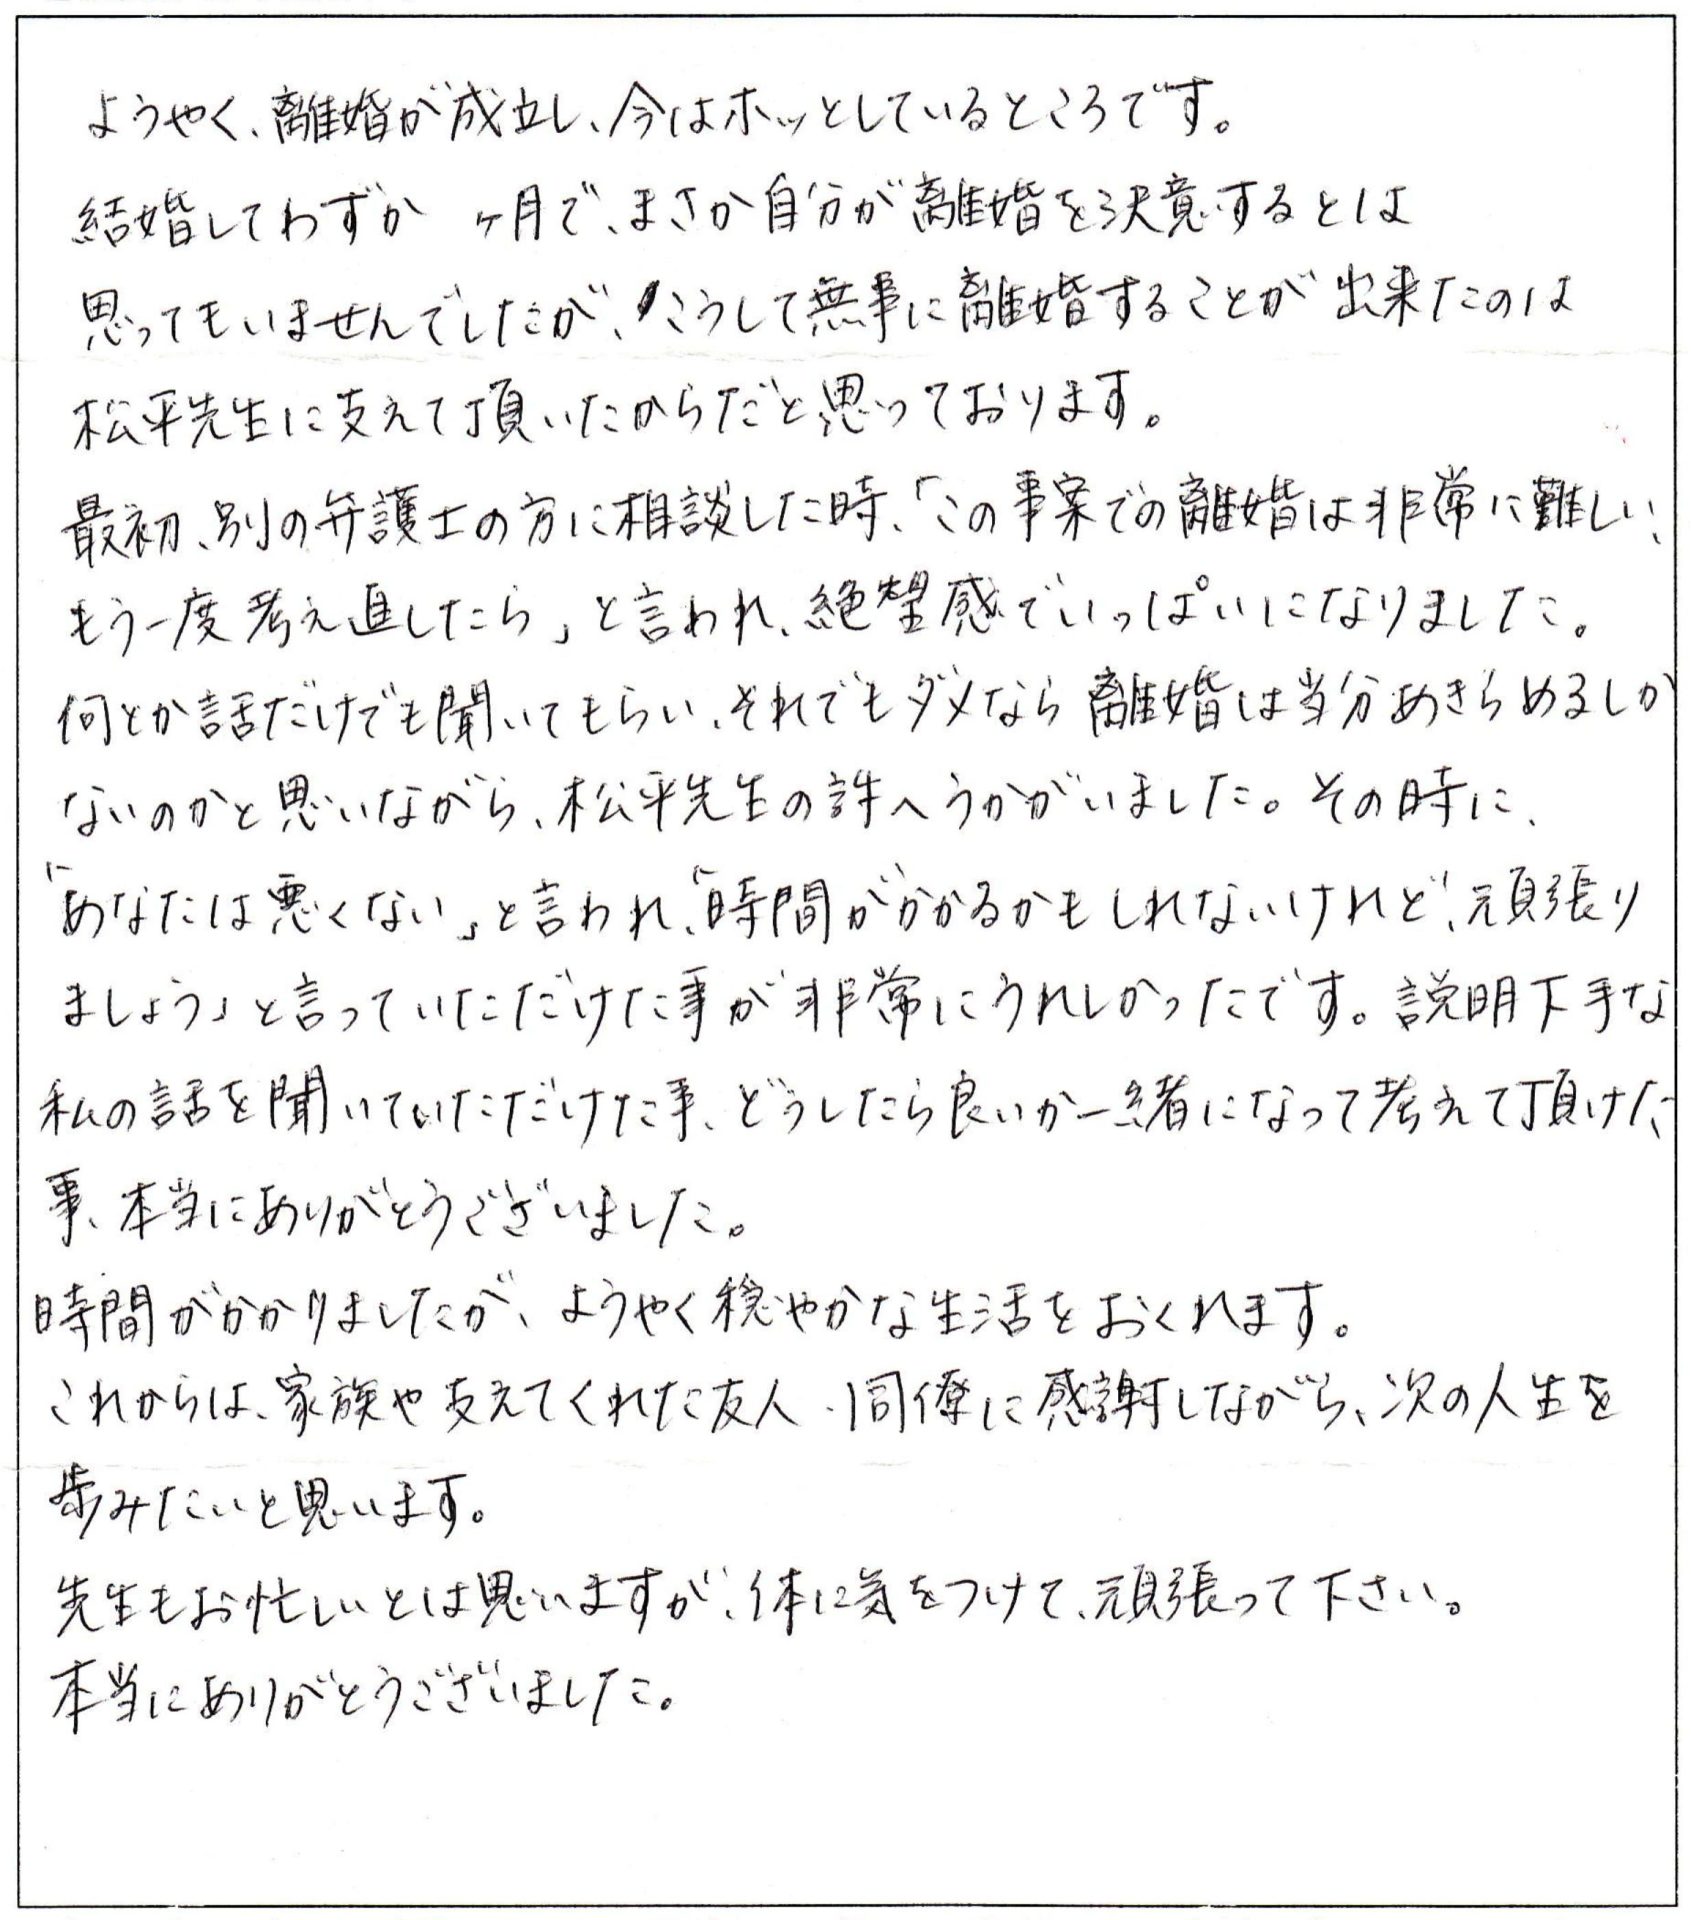 ようやく、離婚が成立し、今はホッとしているところです。
結婚してわずか ヶ月で、まさか自分が離婚を決意するとは
思ってもいませんでしたが、こうして無事に離婚することが出来たのは
松平先生に支えて頂いたからだと思っております。
最初、別の弁護士の方に相談した時、「この事案での離婚は非常に難しい、
もう一度考え直したら」と言われ、絶望感でいっぱいになりました。
何とか話だけでも聞いてもらい、それでもダメなら離婚は当分あきらめるしか
ないのかと思いながら、松平先生の許へうかがいました。その時に、
「あなたは悪くない」と言われ、「時間がかかるかもしれないけれど、頑張り
ましょう」と言っていただけた事が非常にうれしかったです。説明下手な
私の話を聞いていただけた事、どうしたら良いか一緒になって考えて頂けた
事、本当にありがとうございました。
時間がかかりましたが、ようやく穏やかな生活をおくれます。
これからは、家族や支えてくれた友人、同僚に感謝しながら、次の人生を
歩みたいと思います。
先生もお忙しいとは思いますが、体に気をつけて、頑張って下さい。
本当にありがとうございました。